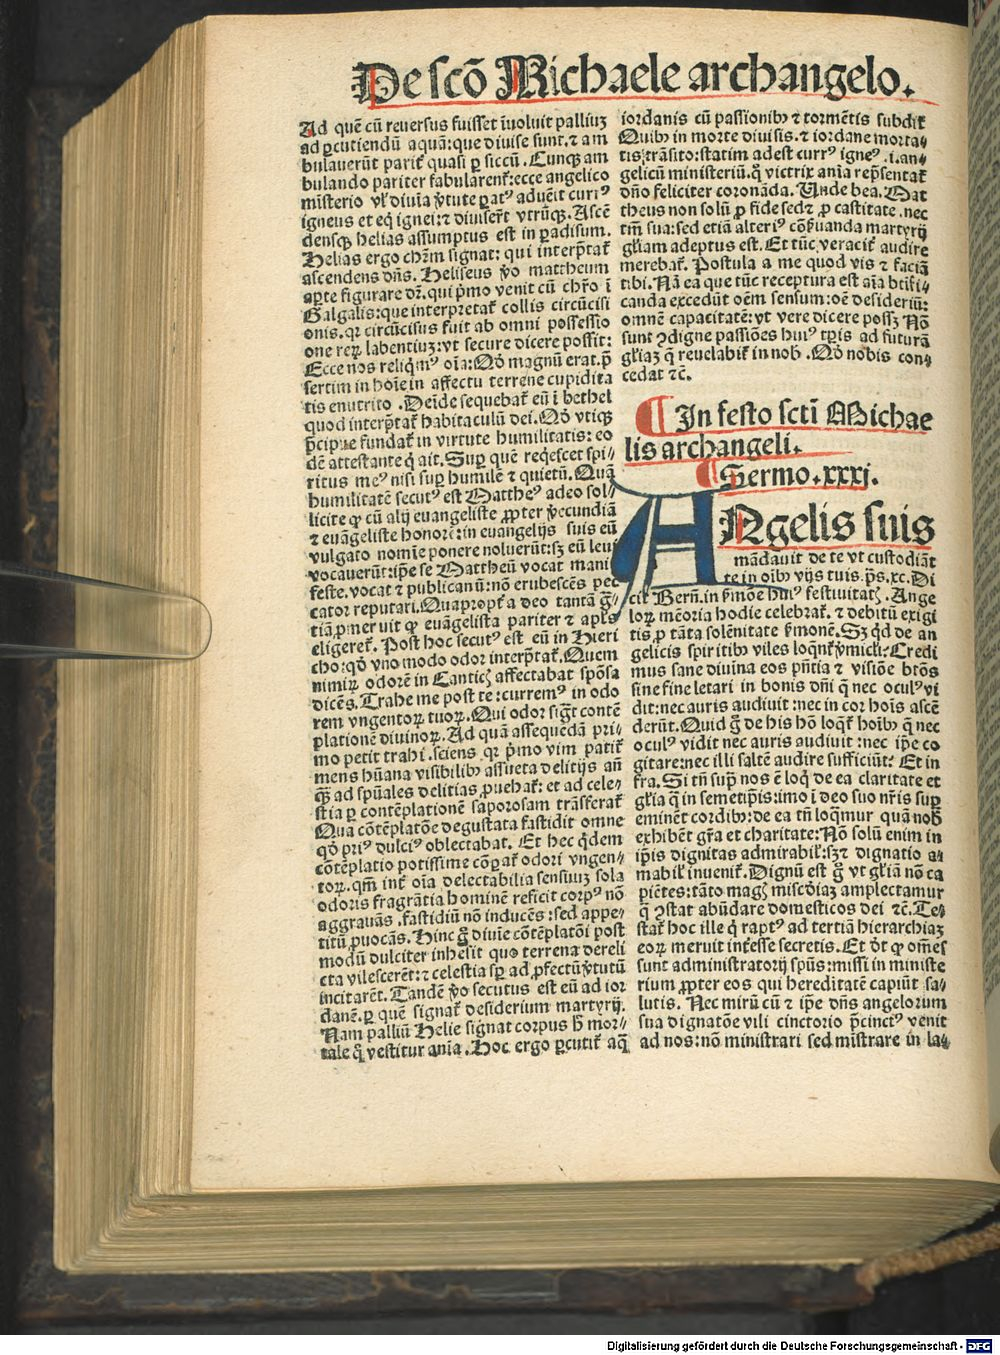 De scō Michaele archangelo.
Ad quē cū reuersus fuisset īuoluit palliuꝫ
ad ꝑcutiendū aquā: que diuise sunt. ⁊ am
bulauerūt parit̄ quasi ꝑ siccū. Cunqꝫ am
bulando pariter fabularent̄: ecce angelico
misterio vl̓ diuia v̓tute ꝑatꝰ aduēit currꝰ
igneus et eq̇ ignei: ⁊ diuiser̄t vtrūqꝫ. Ascē
densqꝫ helias assumptus est in ꝑadisum.
Helias ergo chr̄m signat: qui interp̄tat̄
ascendens dn̄s. Heliseus v̓o mattheum
aꝑte figurare dꝛ̄. qui p̓mo venit cū chr̄o ī
Galgalis: que interpretat̄ collis circūcisi
onis. qꝛ circūcisus fuit ab omni possessio
one reꝝ labentiuꝫ: vt secure dicere possit:
Ecce nos reliq̇mꝰ oīa: Qđ magnū erat. p̄
sertim in hoīe in affectu terrene cupidita
tis enutrito. Deīde sequebat̄ eū ī bethel
quod interp̄tat̄ habitaculū dei. Qđ vtiqꝫ
p̄cipue fundat̄ in virtute humilitatis: eo
dē attestante q̇ ait. Suꝑ quē reqͥescet spi-
ritus meꝰ nisi suꝑ humilē ⁊ quietū. Quā
humilitatē secutꝰ est Mattheꝰ adeo sol-
licite ꝙ cū alij euangeliste ꝓpter v̓ecundiā
⁊ euāgeliste honorē: in euangelijs suis eū
vulgato nomīe ponere noluerūt: sꝫ eū leui
vocauerūt: ip̄e se Mattheū vocat mani
feste. vocat ⁊ publicanū: nō erubescēs pec
cator reputari. Quaꝓpt̄a deo tantā gr̄-
tiā ꝓmeruit ꝙ euāgelista pariter ⁊ apl̄s
eligeret̄. Post hoc secutꝰ est eū in Hieri
cho: qđ vno modo odor interp̄tat̄. Quem
nimiꝝ odorē in Canticꝭ affectabat spōsa
dicēs. Trahe me post te: curremꝰ in odo
rem vngentoꝝ tuoꝝ. Qui odor sigt̄ contē
plationē diuinoꝝ. Ad quā assequēdā pri-
mo petit trahi. sciens qꝛ p̓mo vim patit̄
mens hūana visibilibꝫ assueta delitijs añ
qꝫ ad spūales delitias ꝓuehat̄: et ad cele-
stia ꝑ contēplationē saporosam trāsferat̄
Qua cōtēplatōe degustata fastidit omne
qđ priꝰ dulciꝰ oblectabat. Et hec qͥdem
cōtēplatio potissime cōꝑat̄ odori vngen-
toꝝ. qm̄ int̄ oīa delectabilia sensiuuꝫ sola
odoris fragrātia hominē reficit corpꝰ nō
aggrauās. fastidiū nō inducēs: sed appe-
titū ꝓuocās. Hinc g̊ diuīe cōtēplatōi post
modū dulciter inhesit quo terrena dereli
cta vilescerēt: ⁊ celestia sꝑ ad ꝓfectū v̓tutū
incitarēt. Tandē v̓o secutus est eū ad ior
danē. ꝑ quē signat̄ desiderium martyrij.
Nam palliū Helie signat corpus h̄ mor-
tale q̊ vestitur anīa. Hoc ergo ꝑcutit̄ aq̄
iordanis cū passionibꝫ ⁊ tormētis subdit̄
Quibꝫ in morte diuisis. ⁊ iordane morta-
tis trāsito: statim adest currꝰ igneꝰ. i. an-
gelicū ministeriū. q̊ victrix anīa rep̄sentat̄
dn̄o feliciter coronāda. Vnde bea. Mat
theus non solū ꝓ fide sed ⁊ ꝓ castitate. nec
tm̄ sua: sed etiā alteriꝰ cōẜuanda martyrij
gl̓iam adeptus est. Et tūc veracit̄ audire
merebat̄. Postula a me quod vis ⁊ faciā
tibi. Nā ea que tūc receptura est aīa bt̄ifi-
canda excedūt oēm sensum: oē desideriū:
omnē capacitatē: vt vere dicere possꝫ Nō
sunt ↄdigne passiōes huiꝰ tꝑis ad futurā
gl̓iaꝫ q̄ reuelabit̄ in nob̄. Qđ nobis con-
cedat ⁊c̄.
¶ In festo sctī Michae
lis archangeli.
¶ Sermo. xxxj.
ANgelis suis
mādauit de te vt custodiāt
te in oībꝫ vijs tuis. p̄s. xc. Di
cit Bern̄. in ẜmōe huiꝰ festiuitatꝭ. Ange
loꝝ memoria hodie celebrat̄. ⁊ debitū exigi
tis ꝓ tāta solēnitate ẜmonē. Sꝫ qͥd de an
gelicis spiritibꝫ viles loqͣnt̄ v̓miculi? Credi
mus sane diuina eos p̄ntia ⁊ visiōe btōs
sine fine letari in bonis dn̄i q̄ nec oculꝰ vi
dit: nec auris audiuit: nec in cor hoīs ascē
derūt. Quid g̊ de his hō loqͣt̄ hoībꝫ q̄ nec
oculꝰ vidit nec auris audiuit: nec ip̄e co
gitare: nec illi saltē audire sufficiūt? Et in
fra. Si tn̄ suꝑ nos ē loqͥ de ea claritate et
gl̓ia q̄ in semetip̄is: imo ī deo suo nr̄is suꝑ
eminēt cordibꝫ: de ea tn̄ loqͣmur quā nob̄
exhibēt gr̄a et charitate: Nō solū enim in
ip̄is dignitas admirabil̓: sꝫ ⁊ dignatio a-
mabil̓ inuenit̄. Dignū est g̊ vt gl̓iā nō ca
piētes: tāto magꝭ mīscōiaꝫ amplectamur
q̄ ↄstat abūdare domesticos dei ⁊c̄. Te-
stat̄ hoc ille q̇ raptꝰ ad tertiā hierarchiaꝫ
eoꝝ meruit int̄esse secretis. Et dt̄ ꝙ om̄es
sunt administratorij spūs: missi in ministe
rium ꝓpter eos qui hereditatē capiūt sa-
lutis. Nec mirū cū ⁊ ip̄e dn̄s angelorum
sua dignatōe vili cinctorio p̄cinctꝰ venit
ad nos: nō ministrari sed mīstrare in la-
Digitalisierung gefördert durch die Deutsche Forschungsgemeinschaft - DFG